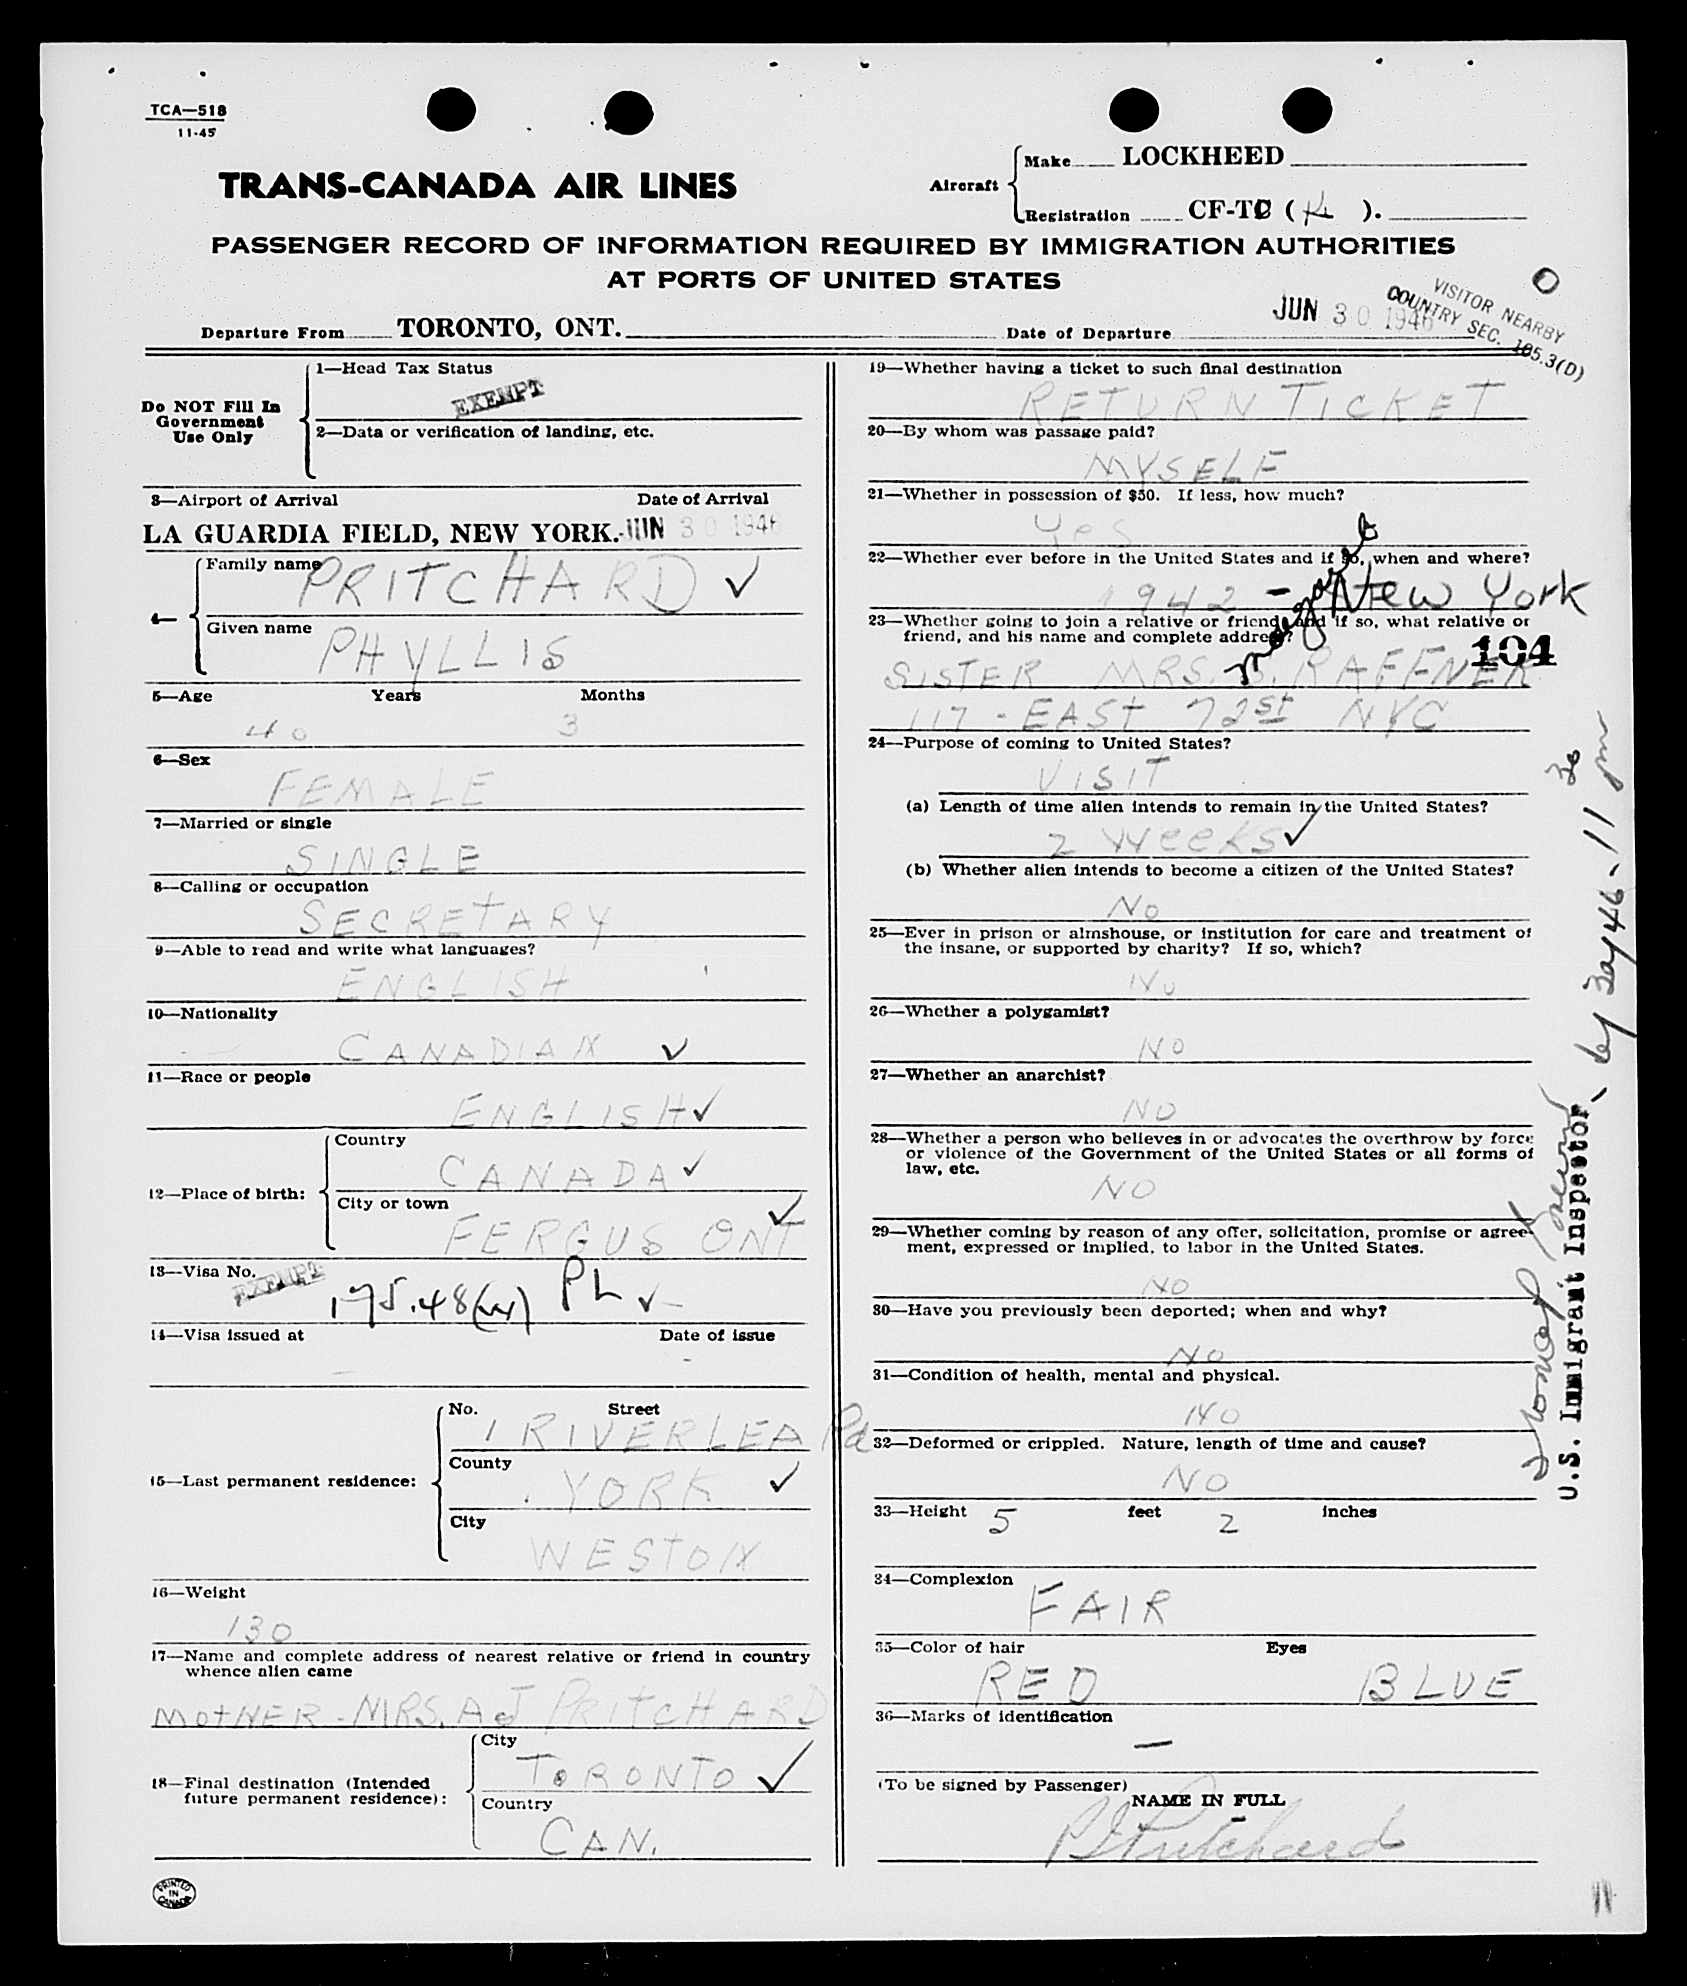 TCA—518
11-45
TRANS-CANADA AIR LINES
Aircraft
Make LOCKHEED
Registration CF-TC (K ).
PASSENGER RECORD OF INFORMATION REQUIRED BY IMMIGRATION AUTHORITIES
AT PORTS OF UNITED STATES
Departure From TORONTO, ONT.
Date of Departure JUN 30 1946
VISITOR NEARBY
COUNTRY SEC. 105.3(D)
Do NOT Fill In
Government
Use Only
1—Head Tax Status
EXEMPT
2—Data or verification of landing, etc.
3—Airport of Arrival Date of Arrival
LA GUARDIA FIELD, NEW YORK. JUN 30 1946
4—
Family name PRITCHARD ✓
Given name PHYLLIS
5—Age Years Months
40 3
6—Sex
FEMALE
7—Married or single
SINGLE
8—Calling or occupation
SECRETARY
9—Able to read and write what languages?
ENGLISH
10—Nationality
CANADIAN ✓
11—Race or people
ENGLISH ✓
12—Place of birth:
Country
CANADA ✓
City or town
FERGUS ONT ✓
13—Visa No.
EXEMPT 175.48(W) PL ✓
14—Visa issued at Date of issue
— -
15—Last permanent residence:
No. Street
1 RIVERLEA Rd
County
YORK ✓
City
WESTON
16—Weight
130
17—Name and complete address of nearest relative or friend in country
whence alien came
MOTHER - MRS. A J PRITCHARD
18—Final destination (Intended
future permanent residence):
City
TORONTO ✓
Country
CAN.
PRINTED
IN
CANADA
19—Whether having a ticket to such final destination
RETURN TICKET
20—By whom was passage paid?
MYSELF
21—Whether in possession of $50. If less, how much?
Yes
22—Whether ever before in the United States and if so, when and where?
1942 - New York
23—Whether going to join a relative or friend, and if so, what relative or
friend, and his name and complete address?
Margaret
104
SISTER MRS. S. RAFFNER
117 - EAST 72st NYC
24—Purpose of coming to United States?
VISIT
(a) Length of time alien intends to remain in the United States?
2 Weeks ✓
(b) Whether alien intends to become a citizen of the United States?
No
25—Ever in prison or almshouse, or institution for care and treatment of
the insane, or supported by charity? If so, which?
No
26—Whether a polygamist?
NO
27—Whether an anarchist?
NO
28—Whether a person who believes in or advocates the overthrow by force
or violence of the Government of the United States or all forms of
law, etc.
NO
29—Whether coming by reason of any offer, solicitation, promise or agree-
ment, expressed or implied, to labor in the United States.
NO
30—Have you previously been deported; when and why?
NO
31—Condition of health, mental and physical.
NO
32—Deformed or crippled. Nature, length of time and cause?
NO
33—Height 5 feet 2 inches
34—Complexion
FAIR
35—Color of hair Eyes
RED BLUE
36—Marks of identification
—
(To be signed by Passenger)
NAME IN FULL
P Pritchard
U.S. Immigrant Inspector